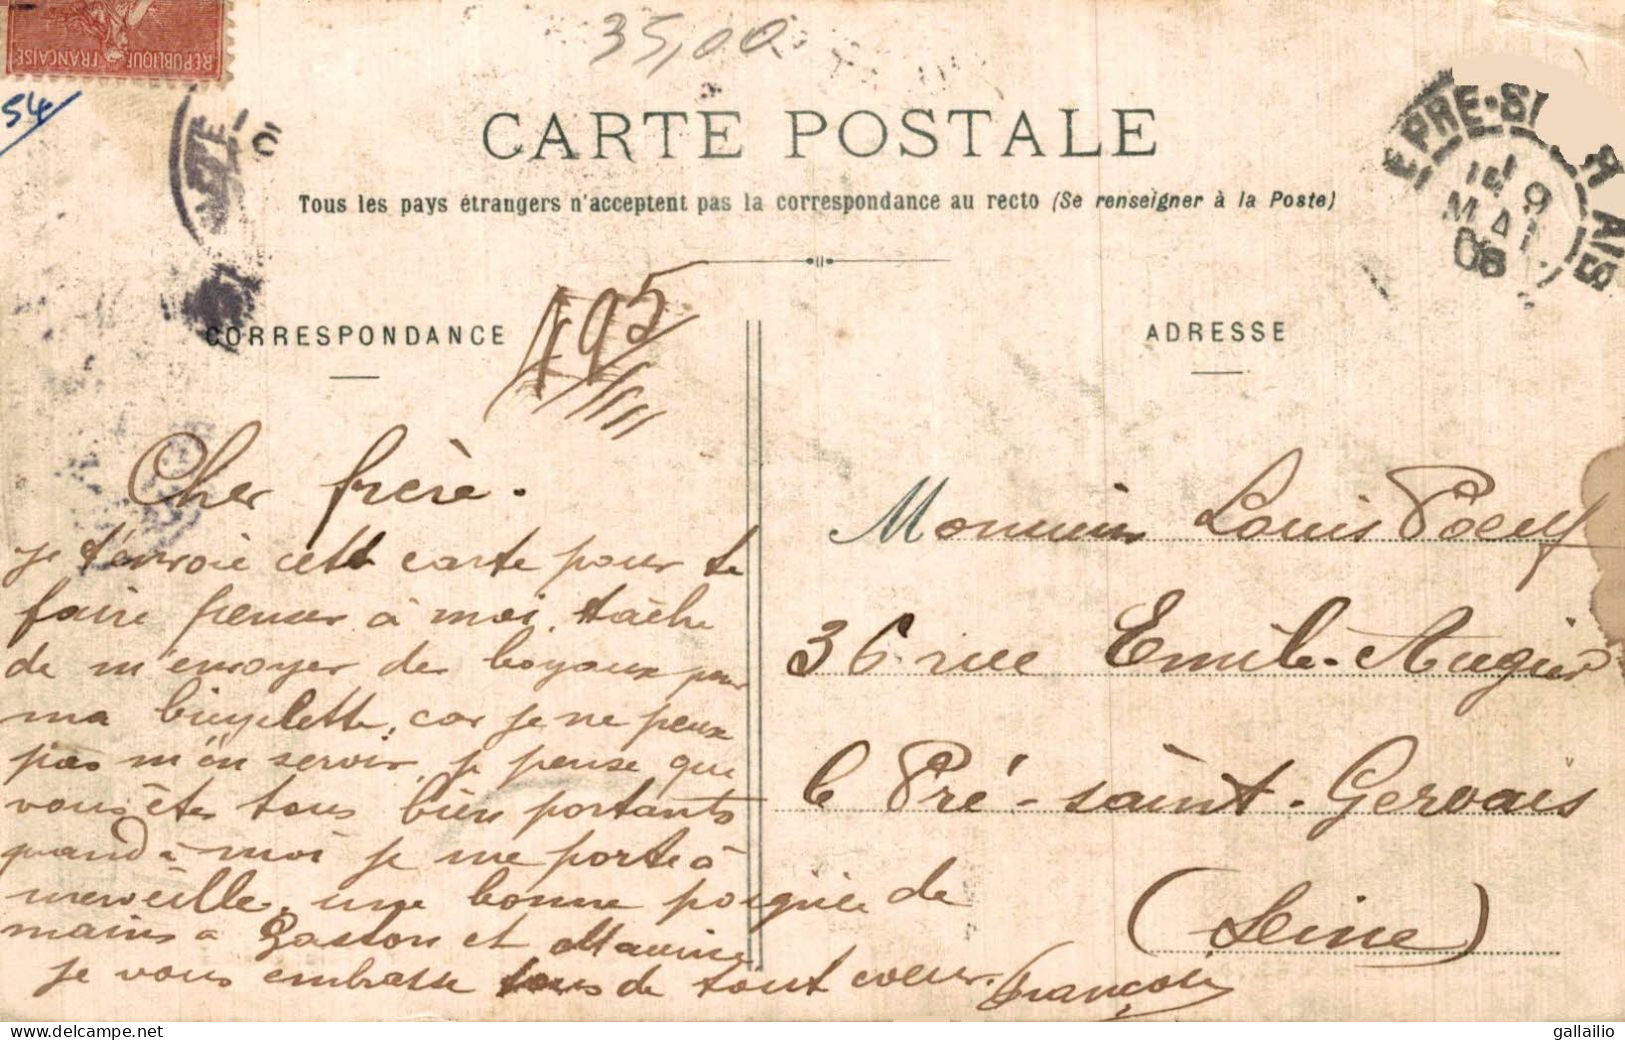 REPUBLIQUE FRANÇAISE
35,00
54
CARTE POSTALE
Tous les pays étrangers n'acceptent pas la correspondance au recto (Se renseigner à la Poste)
E PRE-S
R AIS
9
MAI
06
CORRESPONDANCE
195
ADRESSE
Cher frère.
je t'envoie cette carte pour te
faire penser à moi, tâche
de m'envoyer des boyaux pour
ma bicyclette, car je ne peux
pas m'en servir, je pense que
vous êtes tous bien portants
quand à moi je me porte à
merveille, une bonne poignée de
mains à Gaston et Maurice
je vous embrasse tous de tout coeur. François
Monsieur Louis Poeuf
36 rue Emile-Augier
le Pré-saint-Gervais
(Seine)
gallailio